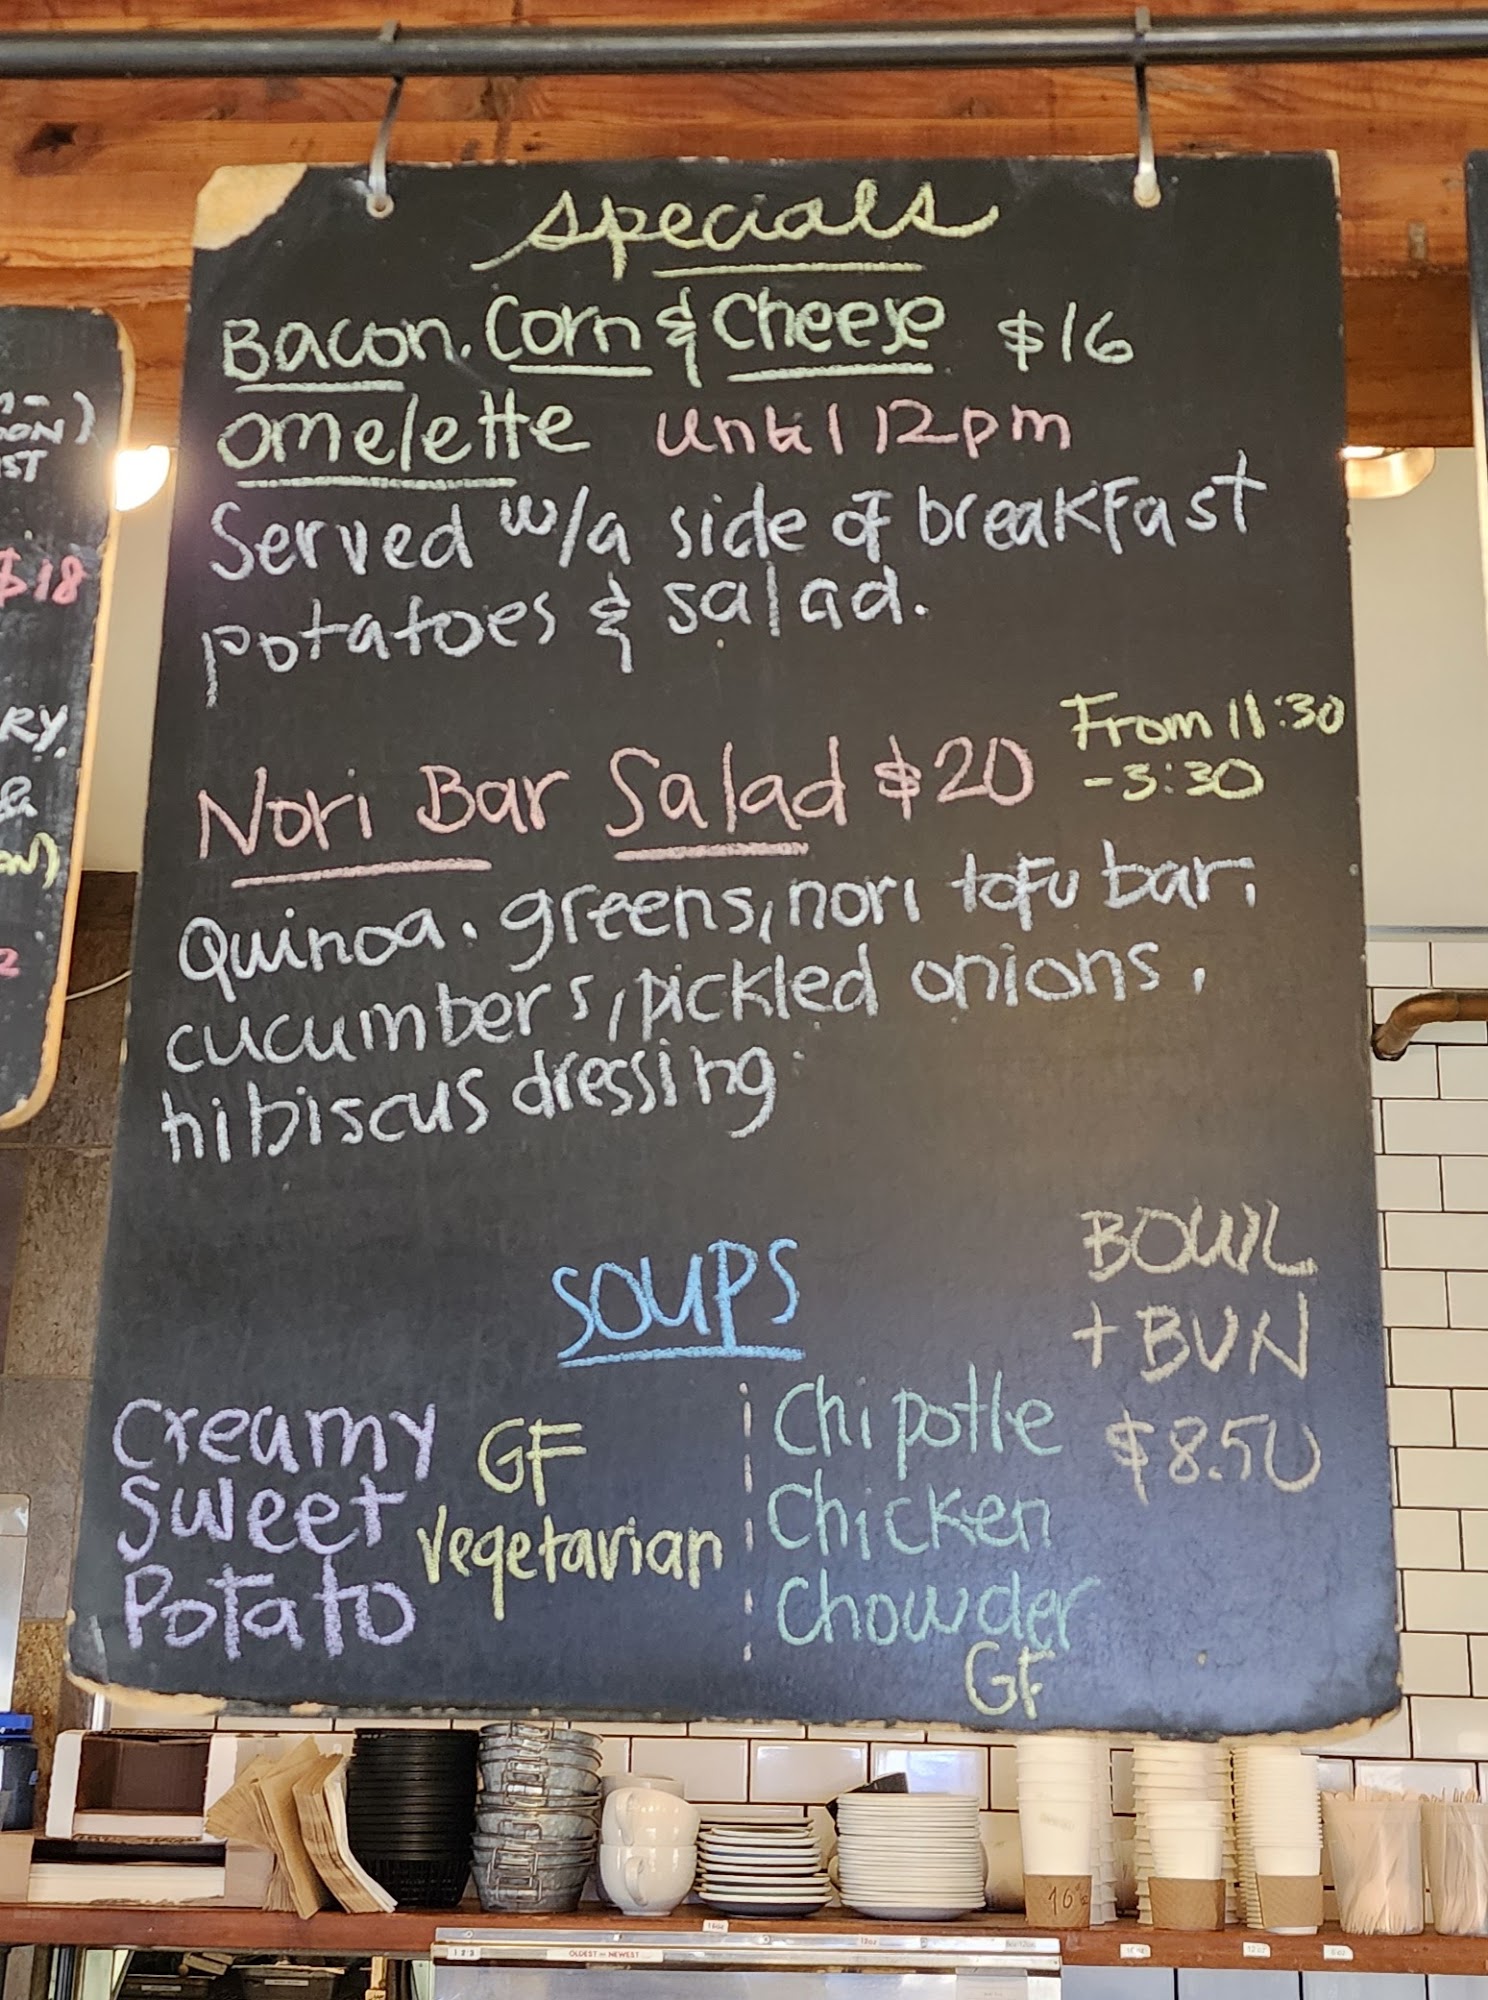 Specials
Bacon, Corn & Cheese $16
Omelette until 12pm
Served w/a side of breakfast
potatoes & salad.
Nori Bar Salad $20 From 11:30
-3:30
Quinoa, greens, nori tofu bar,
cucumbers, pickled onions,
hibiscus dressing
SOUPS
BOWL
+ BUN
$8.50
Creamy
Sweet
Potato
GF
Vegetarian
Chipotle
Chicken
Chowder
GF
$18
RY,
&
2
OLDEST
NEWEST
1 2 3